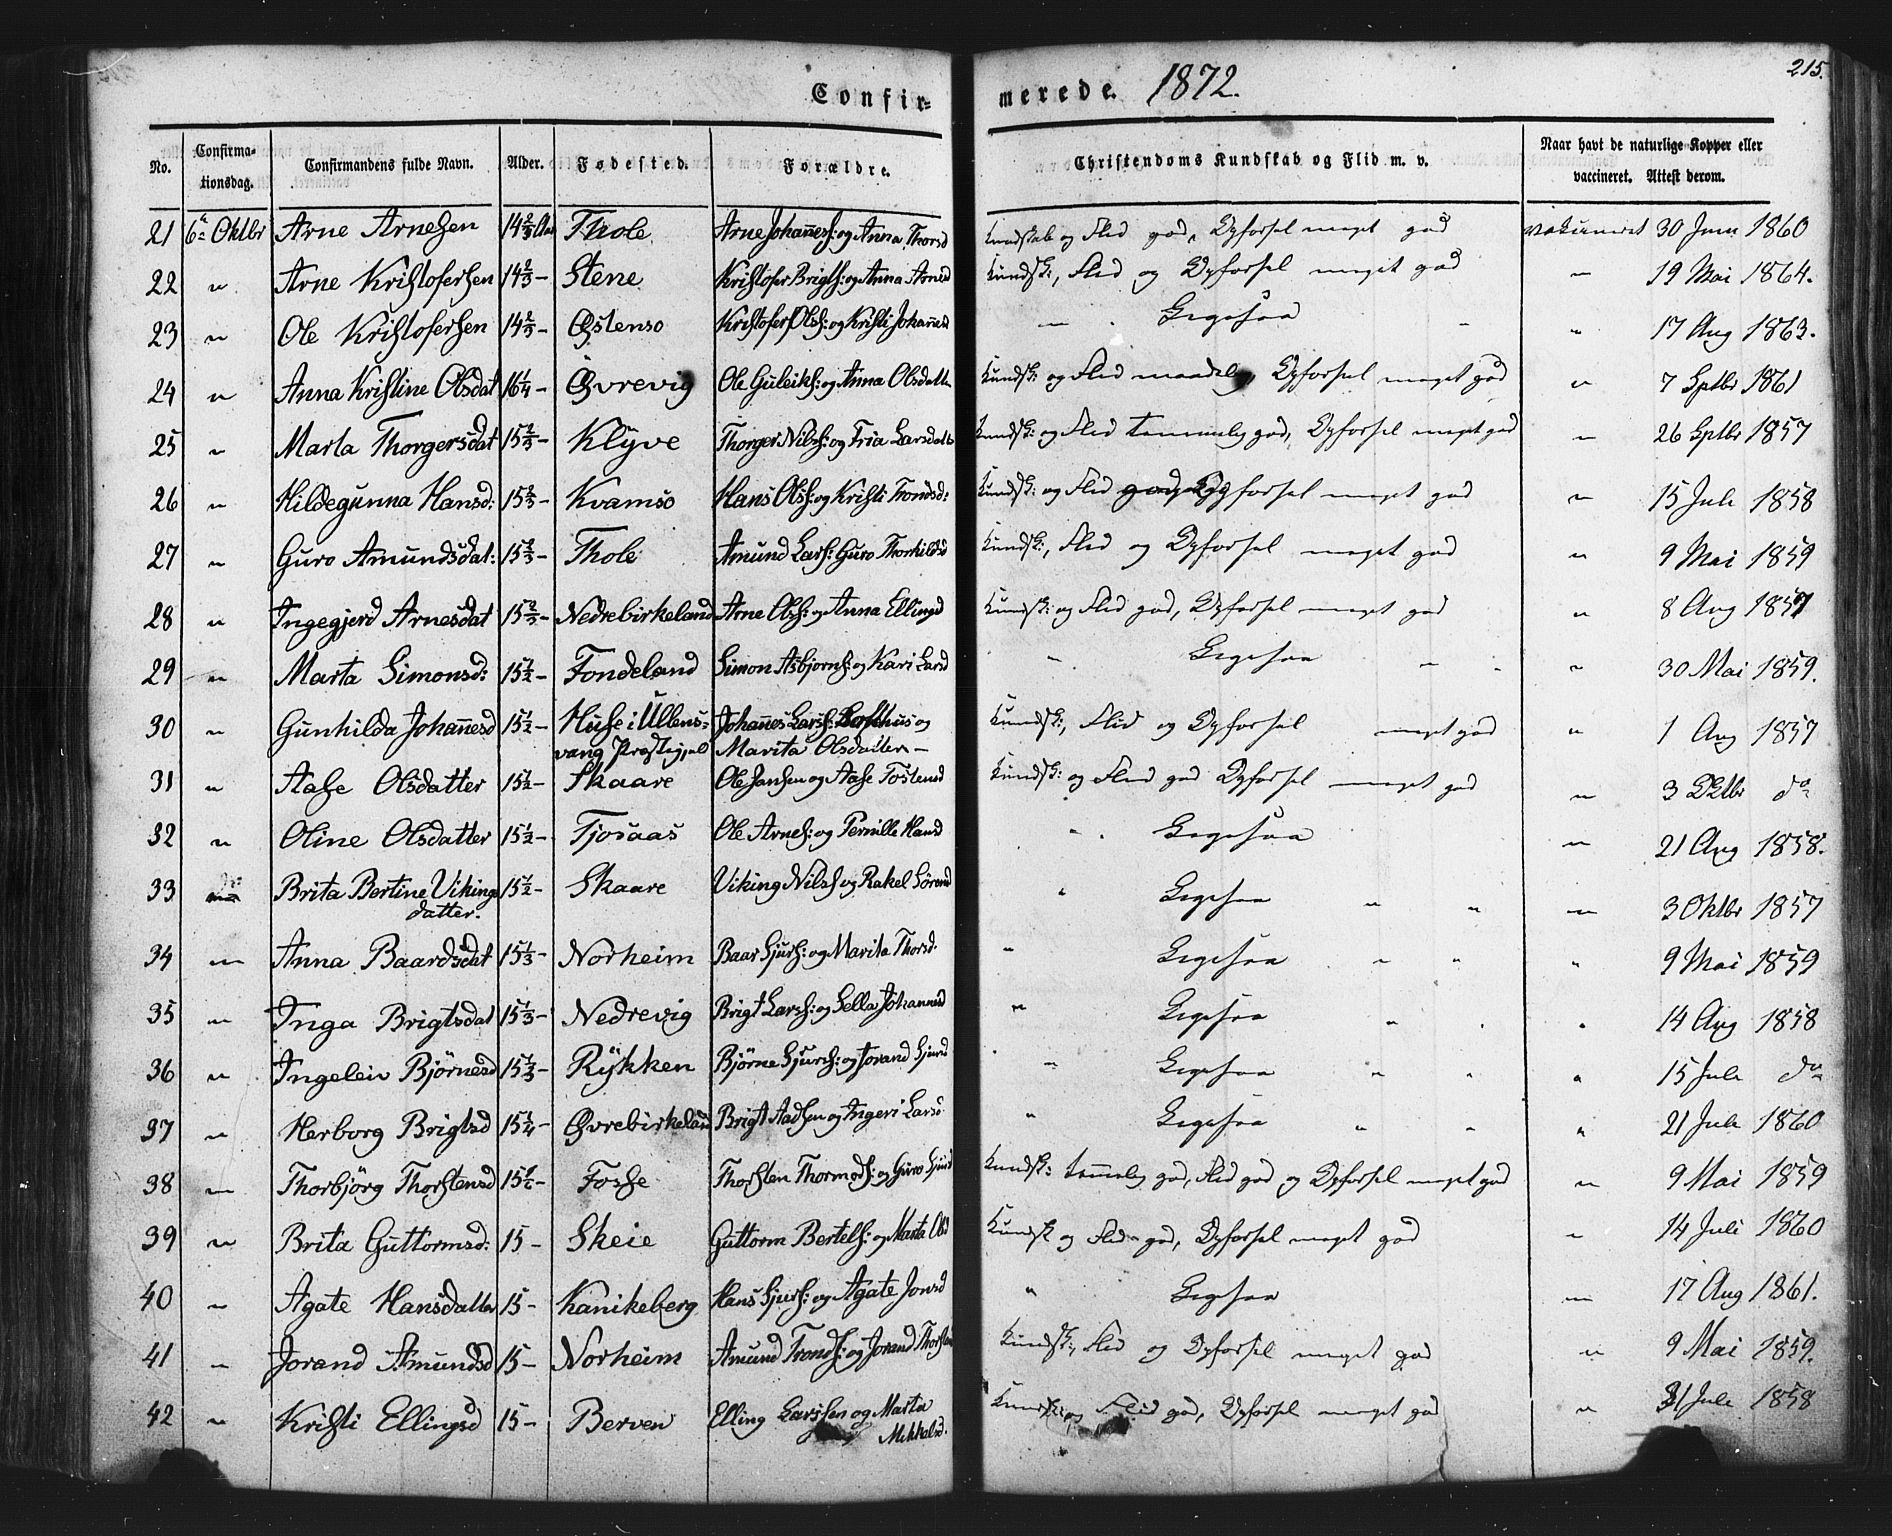 Confirmerede. 1872. 215.
No. Confirmationsdag. Confirmandens fulde Navn. Alder. Fødested. Forældre. Christendoms Kundskab og Flid m. v. Naar havt de naturlige Kopper eller vaccineret. Attest derom.
21 6te Oktbr Arne Arnesen 14 2/3 Aar Thole Arne Johannesſ: og Anna Thorsd Kundskab og Flid god, Opførsel meget god vakcineret 30 Juni 1860
22 " Arne Kristofersen 14 2/3 – Stene Kristofer Brigtsſ: og Anna Arnesd Kundsk:, Flid og Opførsel meget god – 19 Mai 1864.
23 " Ole Kristofersen 14 2/3 – Østensø Kristofer Olsſ: og Kristi Johannesd – Ligesaa – " 17 Aug 1863.
24 " Anna Kristine Olsdat 16 1/4 – Øvrevig Ole Guleiksſ: og Anna Olsdatter Kundsk: og Flid maadelig, Opførsel meget god " 7 Sptbr 1861
25 " Marta Thorgersdat 15 2/3 – Klÿve Thorger Nilsſ: og Tria Larsdatter Kundsk: og Flid temmelig god, Opførsel meget god " 26 Sptbr 1857
26 " Hildegunna Hansd: 15 2/3 – Kvamsø Hans Olsſ: og Kristi Trondsd: Kundsk: og Flid god, Opførsel meget god " 15 Juli 1858
27 " Guro Amundsdat: 15 2/3 – Thole Amund Larsſ: Guro Thorkildsd Kundsk:, Flid og Opførsel meget god " 9 Mai 1859
28 " Ingegjerd Arnesdat 15 2/3 – Nedrebirkeland Arne Olsſ: og Anna Ellingsd Kundsk: og Flid god, Opførsel meget god " 8 Aug 1857
29 " Marta Simonsd: 15 1/2 – Fondeland Simon Asbjornsſ: og Kari Larsd " Ligesaa – " " 30 Mai 1859.
30 " Gunhilda Johannesd 15 1/2 – Huse i Ullens- Johannes Larsſ: og Kundsk:, Flid og Opførsel meget god " 1 Aug 1857
vang Prestegjeld Marita Olsdatter –
31 " Aase Olsdatter 15 1/2 – Skaare Ole Jansen og Aase Tostensd Kundsk: og Flid god Opførsel meget god " 3 Oktbr do
32 " Oline Olsdatter 15 1/2 – Tjosaas Ole Arnesſ: og Pernille Hansd " Ligesaa " 21 Aug 1858.
33 do Brita Bertine Vikings 15 1/2 – Skaare Viking Nilsſ og Rakel Sørensd " Ligesaa " " " 3 Oktbr 1857
datter.
34 " Anna Baardsdat 15 1/3 – Norheim Baar Sjursſ: og Marita Thorsd. " Ligesaa " " " 9 Mai 1859
35 " Inga Brigtsdat 15 1/3 – Nedrevig Brigt Larsſ: og Sella Johannesd " Ligesaa " " " 14 Aug 1858
36 " Ingeleiv Bjørnesd 15 1/3 – Rÿkken Bjørne Sjursſ: og Jorand Sjursd " Ligesaa " " " 15 Juli do
37 " Herborg Brigtsd 15 1/4 – Øvrebirkeland Brigt Aadsen og Ingeri Larsd " Ligesaa " " " 21 Juli 1860
38 " Thorbjörg Thorstensd – Fosse Thorsten Thormodsſ: og Guro Sjursd Kundsk: temmelig god, Flid god og Opførsel meget god " 9 Mai 1859
39 " Brita Guttormsd: 15 – Skeie Guttorm Bertelsſ: og Marta Olsd Kundsk og Flid god, Opførsel meget god " 14 Juli 1860
40 " Agate Hansdatter 15 – Kanikeberg Hans Sjursſ: og Agate Jonsd " Ligesaa " 17 Aug 1861.
41 " Jorand Amundsd 15 – Norheim Amund Trondsſ: og Jorand Thorstensd Kundsk:, Flid og Opførsel meget god " 9 Mai 1859.
42 " Kristi Ellingsd 15 – Berven Elling Larssen og Marta Kundsk: og Flid god, Opførsel meget god " 31 Juli 1858
Mikkalsd.